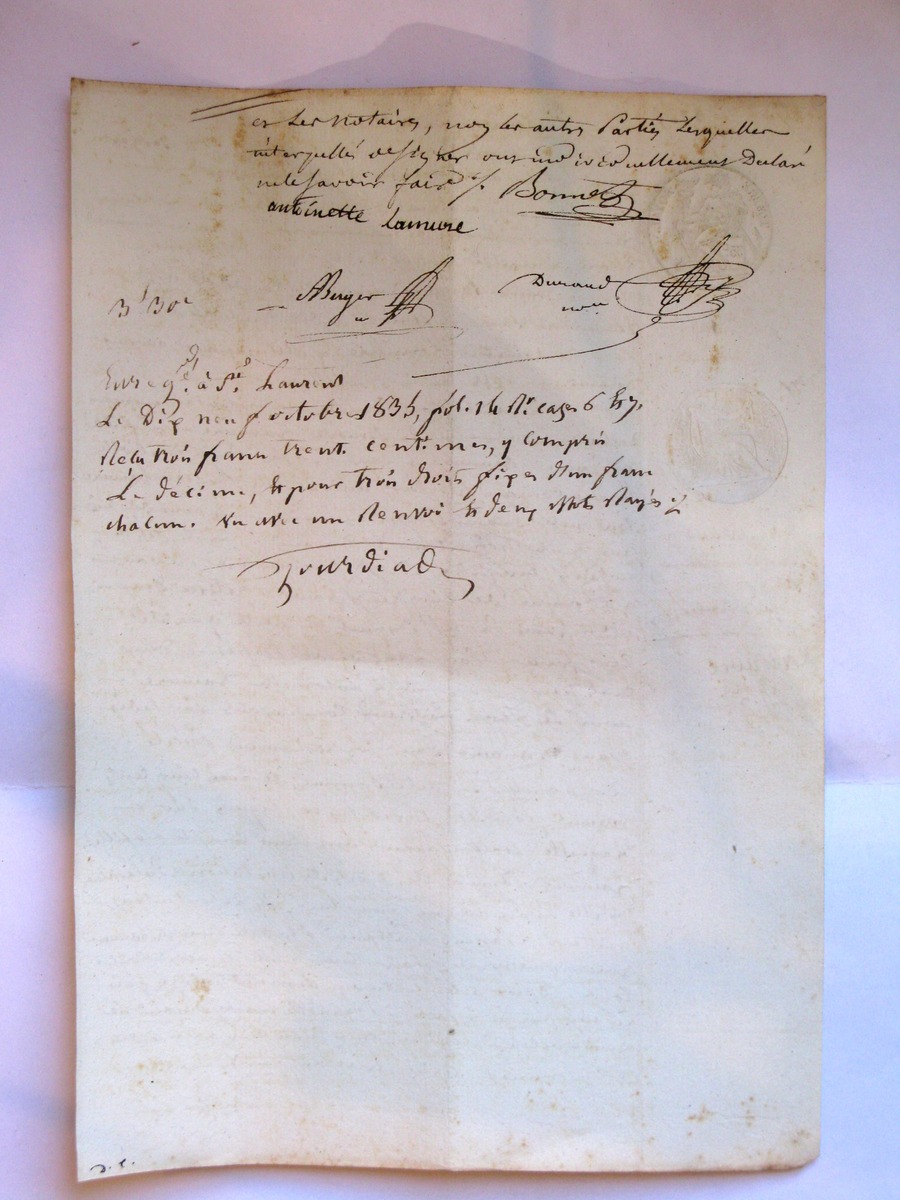 et les notaires, non les autres Parties lesquelles
interpellés de signer ont individuellement Déclaré
ne le savoir faire ./. Bonnet
antoinette Lamure
3f 30c
Berger
nre
Durand
nore
Enregé. à St. Laurent
Le Dix neuf octobre 1835, fol. 14 Ro. cases 6 et 7.
Reçu trois francs trente centimes, y compris
Le décime, et pour trois droits fixes d'un franc
chacun. Vu avec un Renvoi et deux Mots Rayés